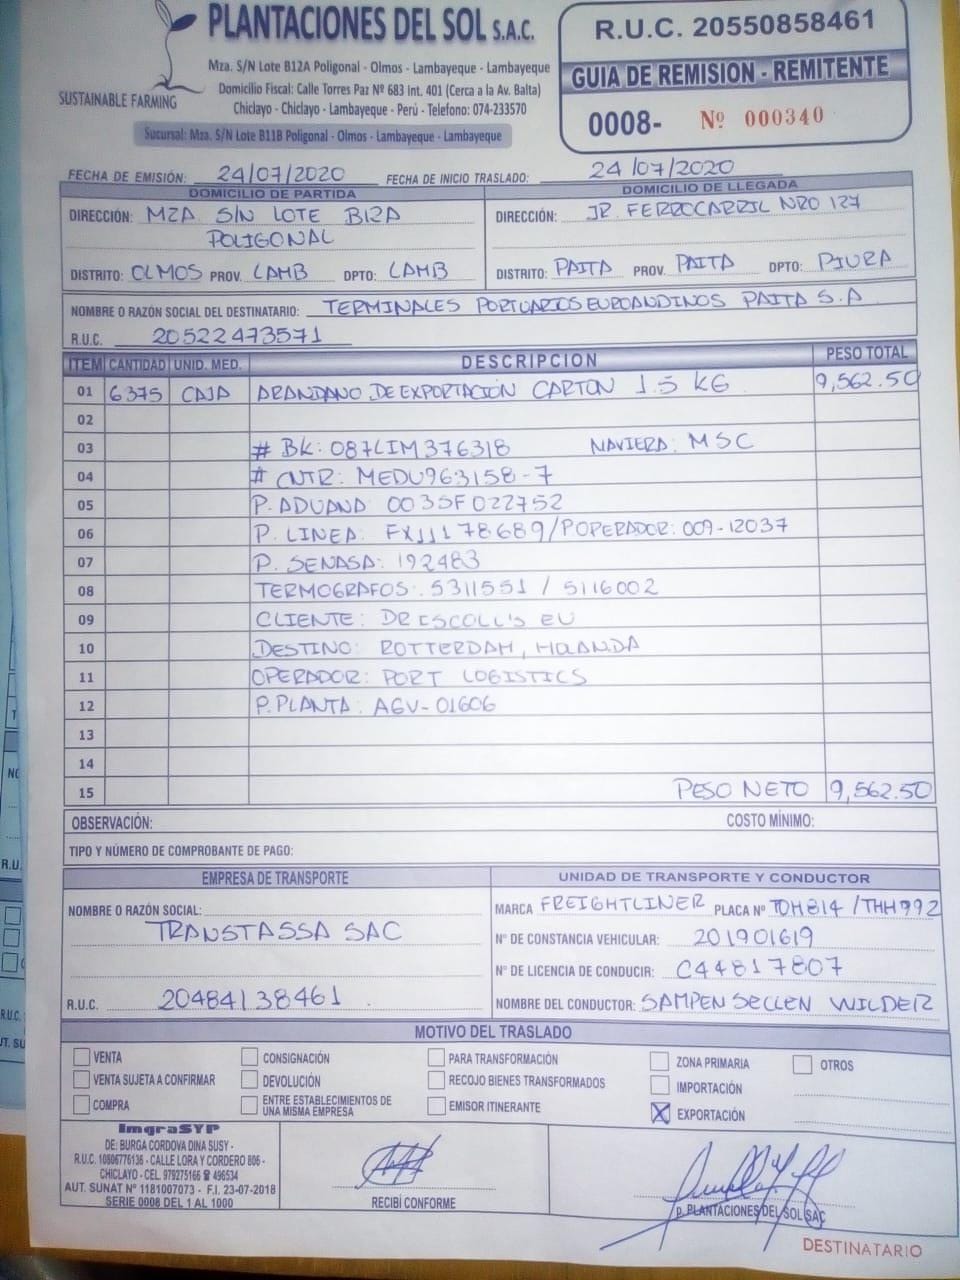 PLANTACIONES DEL SOL S.A.C.
SUSTAINABLE FARMING
Mza. S/N Lote B12A Poligonal - Olmos - Lambayeque - Lambayeque
Domicilio Fiscal: Calle Torres Paz Nº 683 Int. 401 (Cerca a la Av. Balta)
Chiclayo - Chiclayo - Lambayeque - Perú - Telefono: 074-233570
Sucursal: Mza. S/N Lote B11B Poligonal - Olmos - Lambayeque - Lambayeque
R.U.C. 20550858461
GUIA DE REMISION - REMITENTE
0008- Nº 000340
FECHA DE EMISIÓN: 24/07/2020 FECHA DE INICIO TRASLADO: 24/07/2020
DOMICILIO DE PARTIDA
DIRECCIÓN: MZA. S/N LOTE B12A
POLIGONAL
DISTRITO: OLMOS PROV. LAMB DPTO: LAMB
DOMICILIO DE LLEGADA
DIRECCIÓN: JR. FERROCARRIL NRO 127
DISTRITO: PAITA PROV. PAITA DPTO: PIURA
NOMBRE O RAZÓN SOCIAL DEL DESTINATARIO: TERMINALES PORTUARIOS EUROANDINOS PAITA S.A
R.U.C. 20522473571
ITEM CANTIDAD UNID. MED. DESCRIPCION PESO TOTAL
01 6375 CAJA ARANDANO DE EXPORTACIÓN CARTON 1.5 KG 9,562.50
02
03 # BK: 087LIM376318 NAVIERA: MSC
04 # CNTR: MEDU963158-7
05 P. ADUANA: 003SF022752
06 P. LINEA: FXJJ178689/POPERADOR: 009-12037
07 P. SENASA: 192483
08 TERMOGRAFOS: 5311551 / 5116002
09 CLIENTE: DRISCOLL'S EU
10 DESTINO: ROTTERDAM, HOLANDA
11 OPERADOR: PORT LOGISTICS
12 P. PLANTA: AGV-01606
13
14
15 PESO NETO 9,562.50
OBSERVACIÓN: COSTO MÍNIMO:
TIPO Y NÚMERO DE COMPROBANTE DE PAGO:
EMPRESA DE TRANSPORTE
NOMBRE O RAZÓN SOCIAL:
TRANSTASSA SAC
R.U.C. 20484138461
UNIDAD DE TRANSPORTE Y CONDUCTOR
MARCA FREIGHTLINER PLACA Nº TOH814 / THH992
Nº DE CONSTANCIA VEHICULAR: 201901619
Nº DE LICENCIA DE CONDUCIR: C44817807
NOMBRE DEL CONDUCTOR: SAMPEN SECLEN WILDER
MOTIVO DEL TRASLADO
VENTA CONSIGNACIÓN PARA TRANSFORMACIÓN ZONA PRIMARIA OTROS
VENTA SUJETA A CONFIRMAR DEVOLUCIÓN RECOJO BIENES TRANSFORMADOS IMPORTACIÓN
COMPRA ENTRE ESTABLECIMIENTOS DE UNA MISMA EMPRESA EMISOR ITINERANTE X EXPORTACIÓN
ImgraSYP
DE: BURGA CORDOVA DINA SUSY -
R.U.C. 10806776136 - CALLE LORA Y CORDERO 806 -
CHICLAYO - CEL. 979275166 ☎ 496534
AUT. SUNAT Nº 1181007073 - F.I. 23-07-2018
SERIE 0008 DEL 1 AL 1000
RECIBÍ CONFORME
p. PLANTACIONES DEL SOL SAC
DESTINATARIO